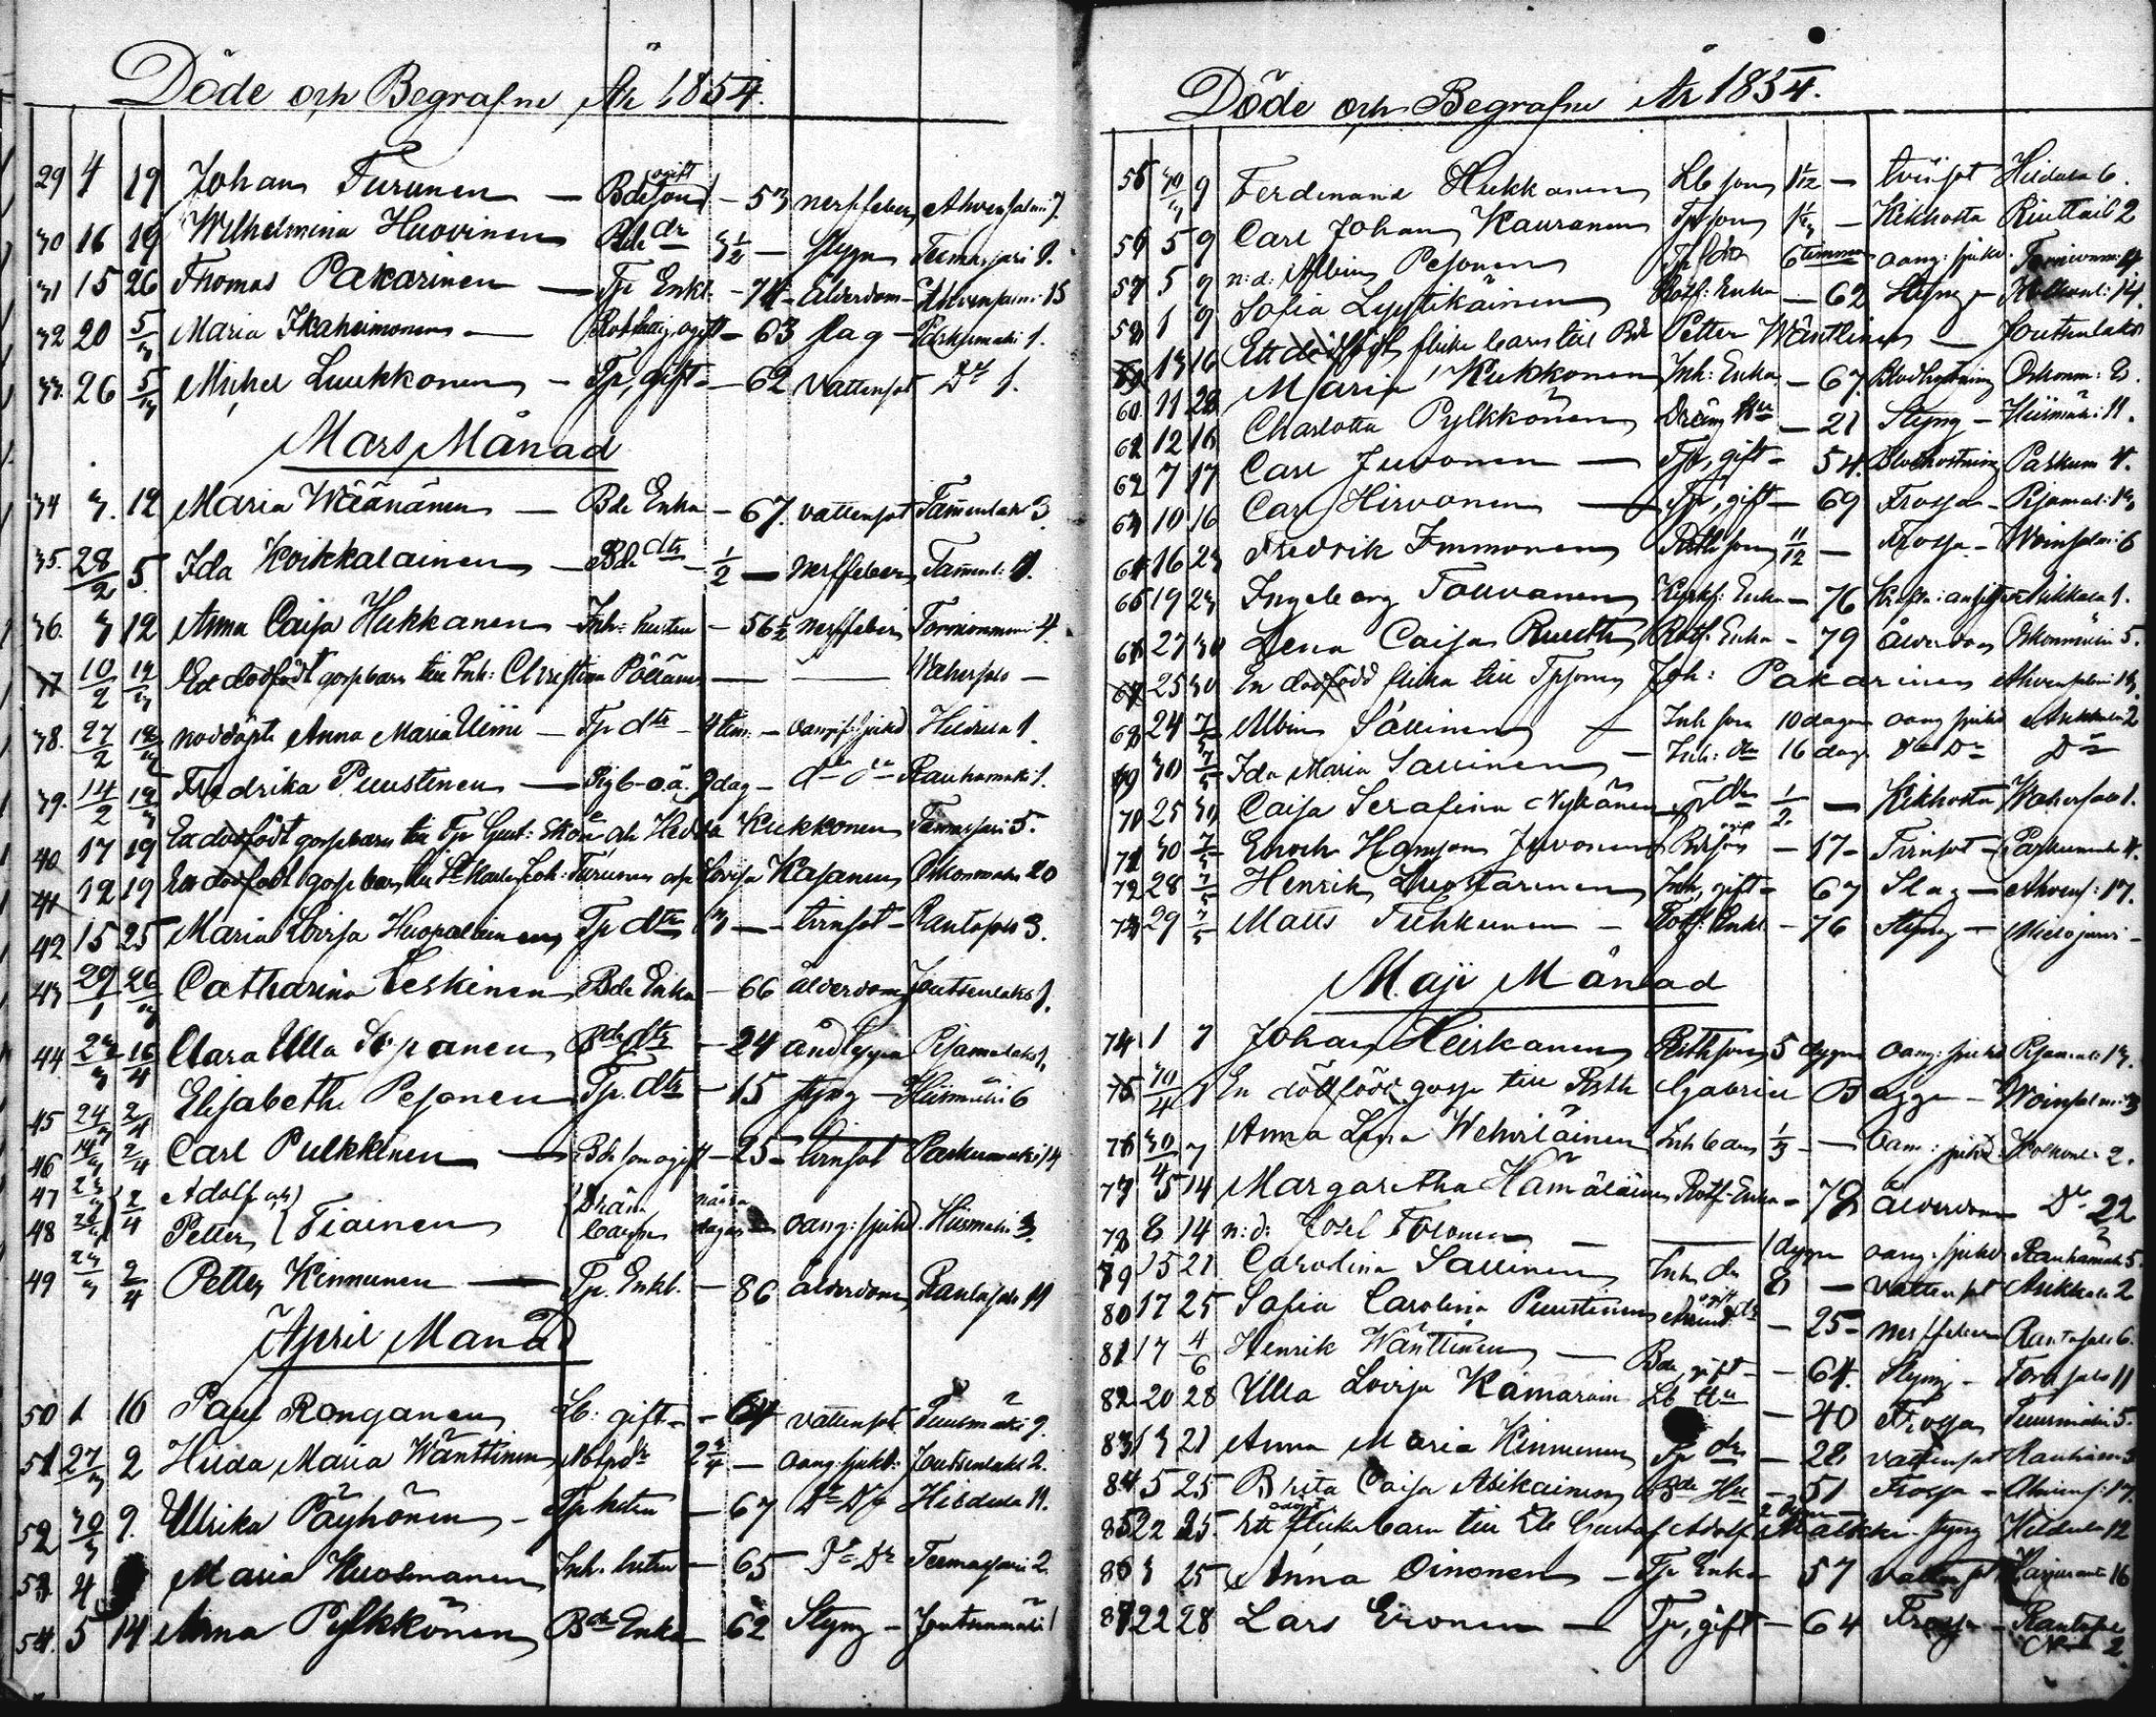 Döde och Begrafne År 1854.
29 4 19 Johan Turunen — Bdeson ogift - 53 nerffeber Ahvensalmi 7.
30 16 19 Wilhelmina Huovinen Bde dr 3 1/2 — stygn Teemasjärvi 9.
31 15 26 Thomas Pakarinen — Tp Enkl. - 74 - ålderdom - Ahvensalmi 15
32 20 5/3 Maria Ikäheimonen — ogift - 63 slag - 1.
33. 26 5/3 Michel Luukkonen - Tp, gift - 62 vattensot Do 1.
Mars Månad
34 3. 12 Maria Wäänänen — Bde Enka - 67. vattensot Tamenlaks 3.
35. 28/2 5. Ida Koikkalainen — Bde dtr - 1/2 — nerffeber Tamenl: 9.
36. 3 12 Anna Caisa Hukkanen - Inh: hustru - 56 1/2 nerffeber Tornionmäki 4.
37 10/2 12/3 Ett dödfödt gossbarn till Inh: Christian Pöllänen — Waherfalo -
38. 27/2 12/3 nöddöpte Anna Maria - Tp dtr - 4 tim. - oangif: sjukd Heidula 1.
39. 14/2 12/3 Fredrika Puustinen — Pig b-o.ä. 9 dag - do do Rauhamäki 1.
40 17 19 Ett dödfödt gossbarn till Tp Gust: och Hedda Kukkonen Temasjärvi 5.
41 12 19 Ett dödfödt gossbarn till Joh: Turunen och Lovisa Kasanen Oskonmäki 20
42 15 25 Maria Lovisa Huopalainen Tp dtr 3 — - tvinsot - Rantasalo 3.
43 29/1 26/3 Catharina Leskinen Bde Enka - 66 ålderdom Joutsenlaks 1.
44 23/3 16/4 Clara Ulla Sopanen Bde dtr - 24 andtäppa Pjamalaks 1.
45 24/3 2/4 Elisabeth Pesonen Tp. dtr - 15 styng - Hiismäki 6
46 14/3 2/4 Carl Pulkkinen — Bde son ogift - 25 - tvinsot Paskumäki 14
47 23/3 2/4 Adolf och
48 Petter Tiainen några dagar — oang: sjukd. Hiismäki 3.
49 23/3 2/4 Petter Kinnunen — Tp. Enkl. - 86 ålderdom Rantasalo 11
April Månad
50 1 16 Paul Ronganen Lb: gift - - 64 vattensot Tuusmäki 9.
51 27/3 2 Hilda Maria Wänttinen dr 2 3/4 — oang: sjukd: Joutsenlaks 2.
52 30/3 9. Ulrika Päyhönen - Tp hustru — 67 Do Do Heidula 11.
53. 4 Maria Huosmanen Inh. hustru - 65 Do Do Temasjärvi 2.
54. 5 14 Anna Pylkkönen Bde Enka - 62 Styng - Joutsenmäki 1
Döde och Begrafne År 1854.
55 30/3 9 Ferdinand Hukkanen Lb son 1 1/12 — tvinsot Heidula 6.
56 5 9 Carl Johan Kauranen Tp son 1 1/3 - Kikhosta Riuttail 2
57 5 9 n: d: Albin Pesonen 6 timmar oang: sjukd. Tornionm: 4
58 1 9 Sofia Lyytikäinen Rotf: Enka — 62 Styng - Kolkonl: 14.
59 13 16 Ett dödfödt flicke barn till Bde Petter Wänttinen — Joutsenlaks
60. 11 28 Maria Kukkonen Inh: Enka - 67. Blodhostning Oskonm: 8.
61 12 16 Charlotta Pylkkönen Dräng Hu — 21 Styng - Hiismäki 11.
62 7 17 Carl Juvonen — Tp, gift - 54. Blodhostning Paskum 4.
63 10 16 Carl Hirvonen — Tp, gift - 69 Frossa - Pjamal: 13
64 16 23 Fredrik Immonen son 11/12 — Frossa - Woinsalmi 6
65 19 23 Ingeborg Tolvanen Enka - 76 Kräfta: ansigtet Asikkala 1.
66 27 30 Lena Caisa Ruuth Rotf. Enka - 79 ålderdom Oskonmäki 5.
67 25 30 En dödfödd flicka till Tpsonen Joh: Pakarinen Ahvensalmi 13.
68 24 7/5 Albin Sallinen — Inh son 10 dagar oang sjukd Asikkala 2
69 30 7/5 Ida Maria Sallinen - Inh: dtr 16 dag Do Do Do
70 25 30 Caisa Serafina Nykänen Tp dtr 1/2 — Kikhosta Waherfalo 1.
71 30 7/5 Enoch Hansson Juvonen ogift - 17 - Tvinsot - Paskumäki 4.
72 28 7/5 Henrik Luostarinen Inh, gift - 67 Slag - Ahvens: 17.
73 29 7/5 Matts Tuhkunen - Rotf: Enkl. - 76 Styng - Mielojärvi -
Maji Månad
74 1 7 Johan Heiskanen son 5 dygn oang: sjukd Pjamal: 13.
75 30/4 7 En dödfödd gosse till Gabriel Bagge - Woinsalmi 3
76 30/4 7 Anna Lena Wehviläinen Inh barn 1/3 — Oan: sjukd: Kolkonl: 2.
77 5 14 Margaretha Hämäläinen Rotf: Enka - 78 ålderdom Do 22
78 8 14 n: d: Josef Tolonen — 1 dygn oang: sjukd Rauhamäki 5.
79 15 21 Carolina Sallinen Inh dr 8 — vattensot Asikkala 2
80 17 25 Sofia Carolina Puustinen ogift — 25 - nerffeber Rantasalo 6.
81 17 4/6 Henrik Wänttinen — Bde, gift - - 64. Styng - Torasalo 11
82 20 28 Ulla Lovisa Kämäräin Lb Hu — 40 Frossa Tuusmäki 5.
83 13 21 Anna Maria Kinnunen Tp dr — 28 vattensot Rauhamäki 5
84 5 25 Brita Caisa Asikainen Bde Hu — 51 Frossa - Ahvens: 17.
85 22 25. Ett odöpt flicke barn till Gustaf Adolf Malkki 2 dygn - styng Heidula 12
86 3 25 Anna Oinonen — Tp Enka 57 vattensot Harjuranta 16
87 22 28 Lars Eronen — Tp, gift - 64 Frossa - Rantasalo 2.